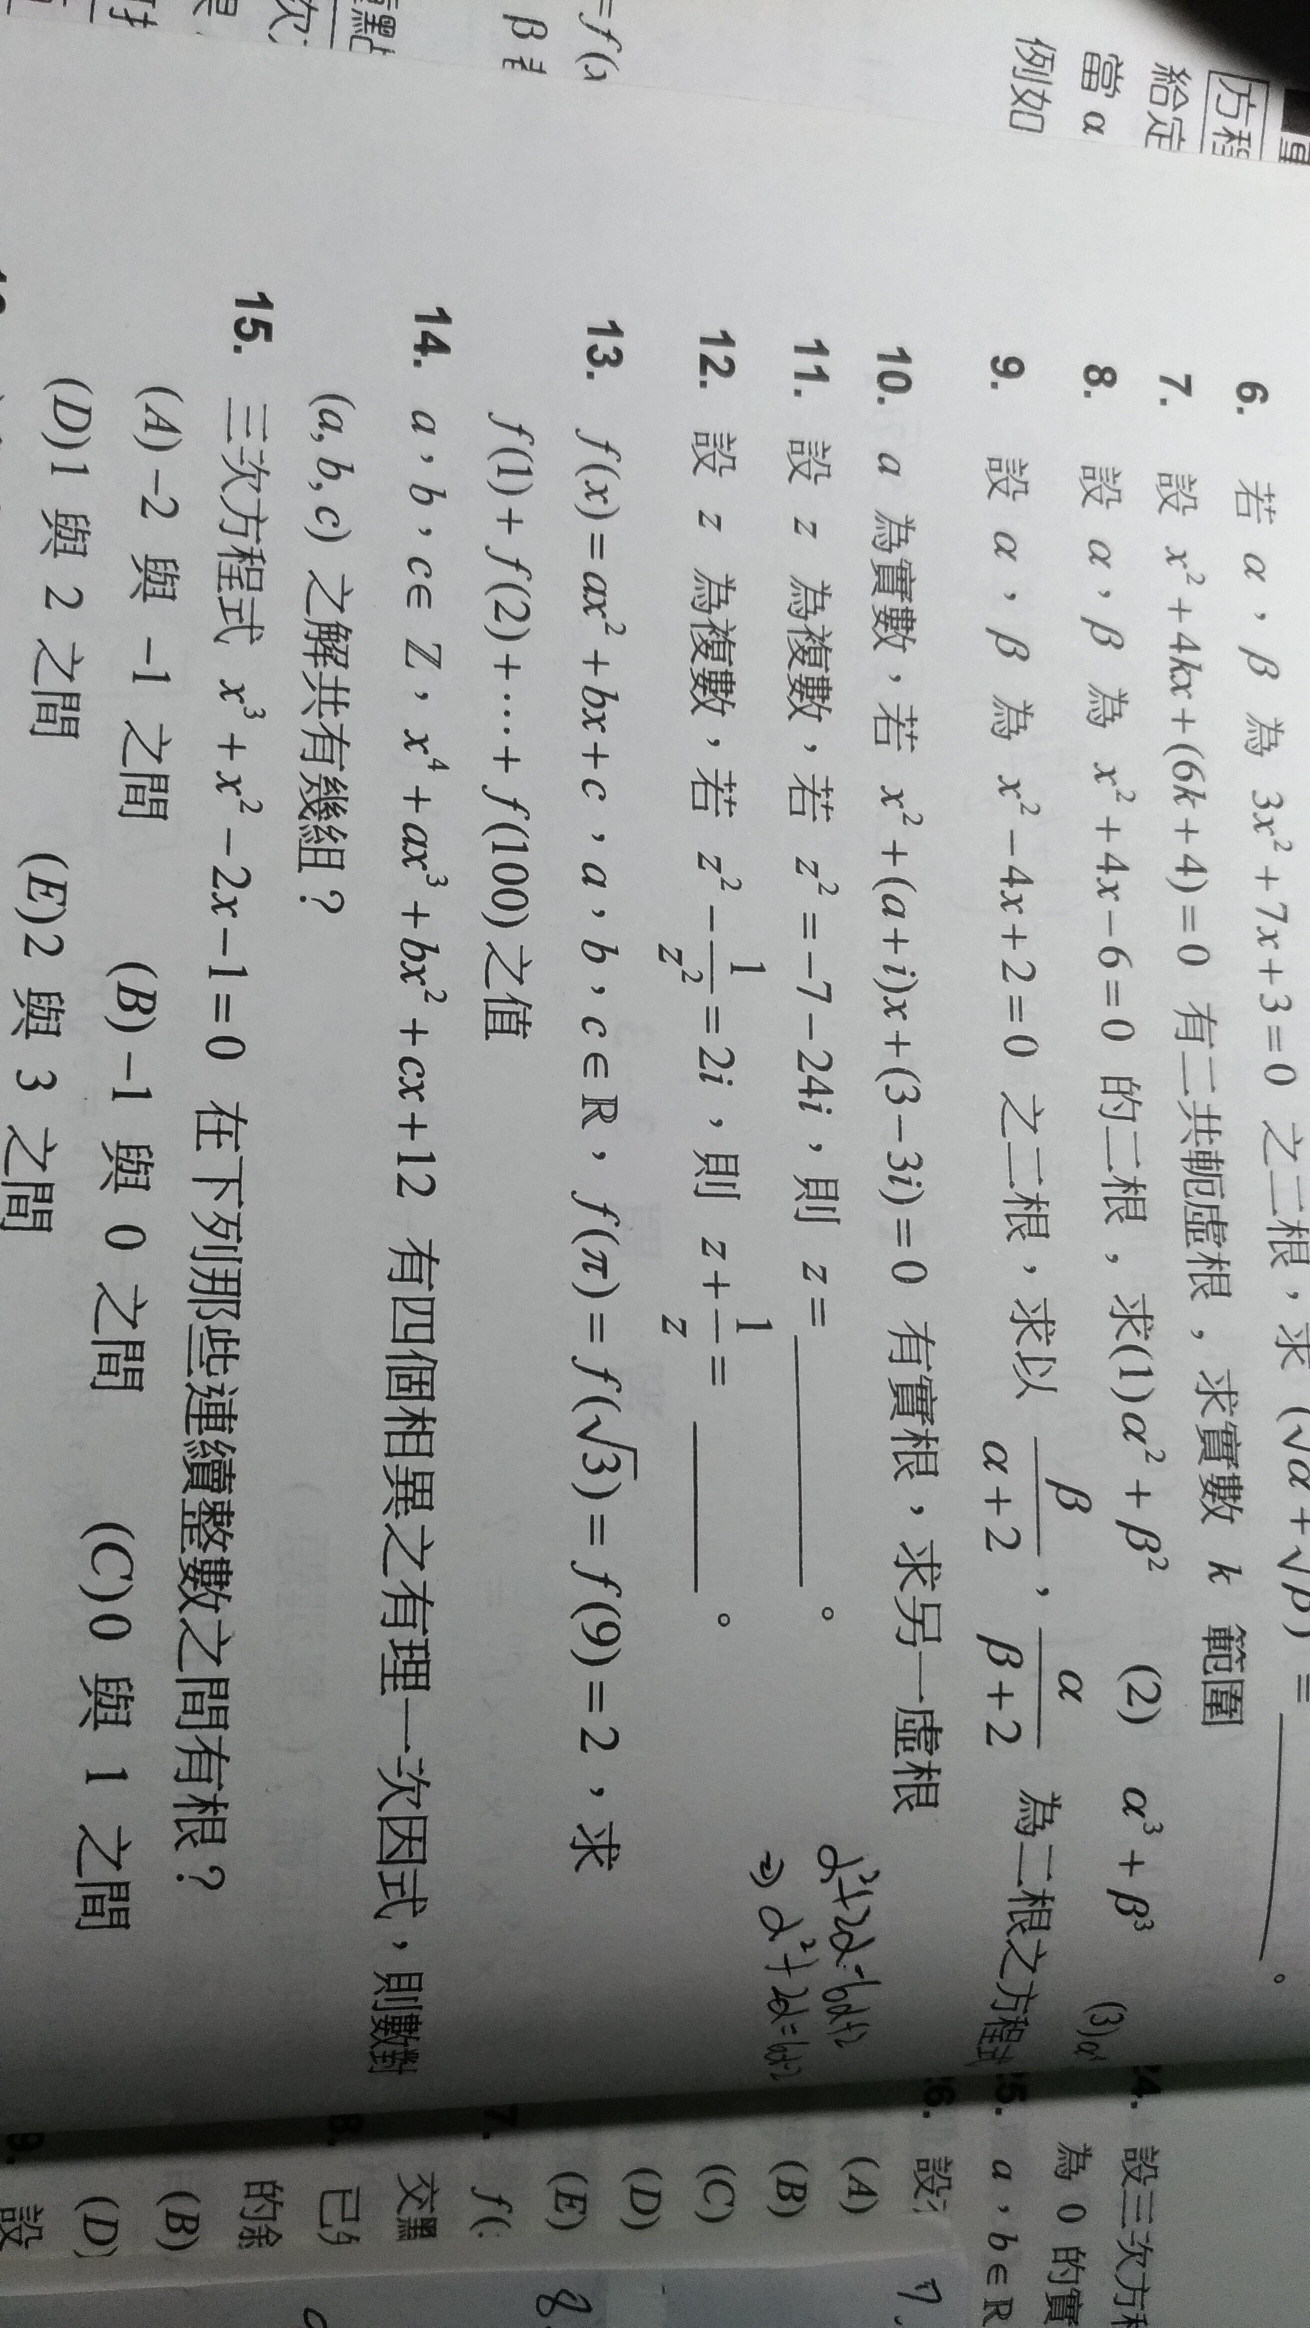 方程
給定
當 α
例如
=f(x
β
6. 若 α,β 為 3x²+7x+3=0 之二根,求 (√α+√β) = ____。
7. 設 x²+4kx+(6k+4)=0 有二共軛虛根,求實數 k 範圍
8. 設 α,β 為 x²+4x−6=0 的二根,求(1)α²+β² (2) α³+β³ (3)α
9. 設 α,β 為 x²−4x+2=0 之二根,求以 β/(α+2),α/(β+2) 為二根之方程式
10. a 為實數,若 x²+(a+i)x+(3−3i)=0 有實根,求另一虛根
11. 設 z 為複數,若 z²=−7−24i,則 z= ____。
12. 設 z 為複數,若 z²−1/z²=2i,則 z+1/z= ____。
13. f(x)=ax²+bx+c,a,b,c∈ℝ,f(π)=f(√3)=f(9)=2,求
f(1)+f(2)+⋯+f(100)之值
14. a,b,c∈ Z,x⁴+ax³+bx²+cx+12 有四個相異之有理一次因式,則數對
(a,b,c) 之解共有幾組?
15. 三次方程式 x³+x²−2x−1=0 在下列那些連續整數之間有根?
(A)−2 與 −1 之間 (B)−1 與 0 之間 (C)0 與 1 之間
(D)1 與 2 之間 (E)2 與 3 之間
4. 設三次方程
為 0 的實
5. a,b∈ℝ
6. 設
(A)
(B)
(C)
(D)
(E)
7. f(
交點
8. 已
的餘
(B)
(D)
9. 設
7.
8